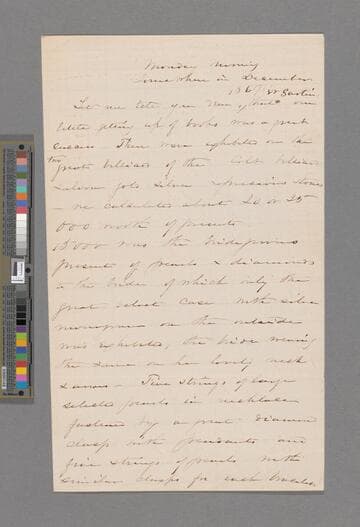 Monday morning
Somewhere in December
Let me tell you
little pile up of books was a great
success There were exhibited on the
two
great billiard of the billiard
silver precious stones
- we calculated about 20 or 25
000 worth of presents
15000 was the bridegrooms
present of pearls & diamonds
to the bride of which only the
great velvet case with silver
monogram on the outside
was exhibited, the bride wearing
the same on her lovely neck
& arms - Five strings of large
selected pearls in necklace
fastened by a great diamond
clasp with pendants and
five strings of pearls with
similar clasps for each bracelet